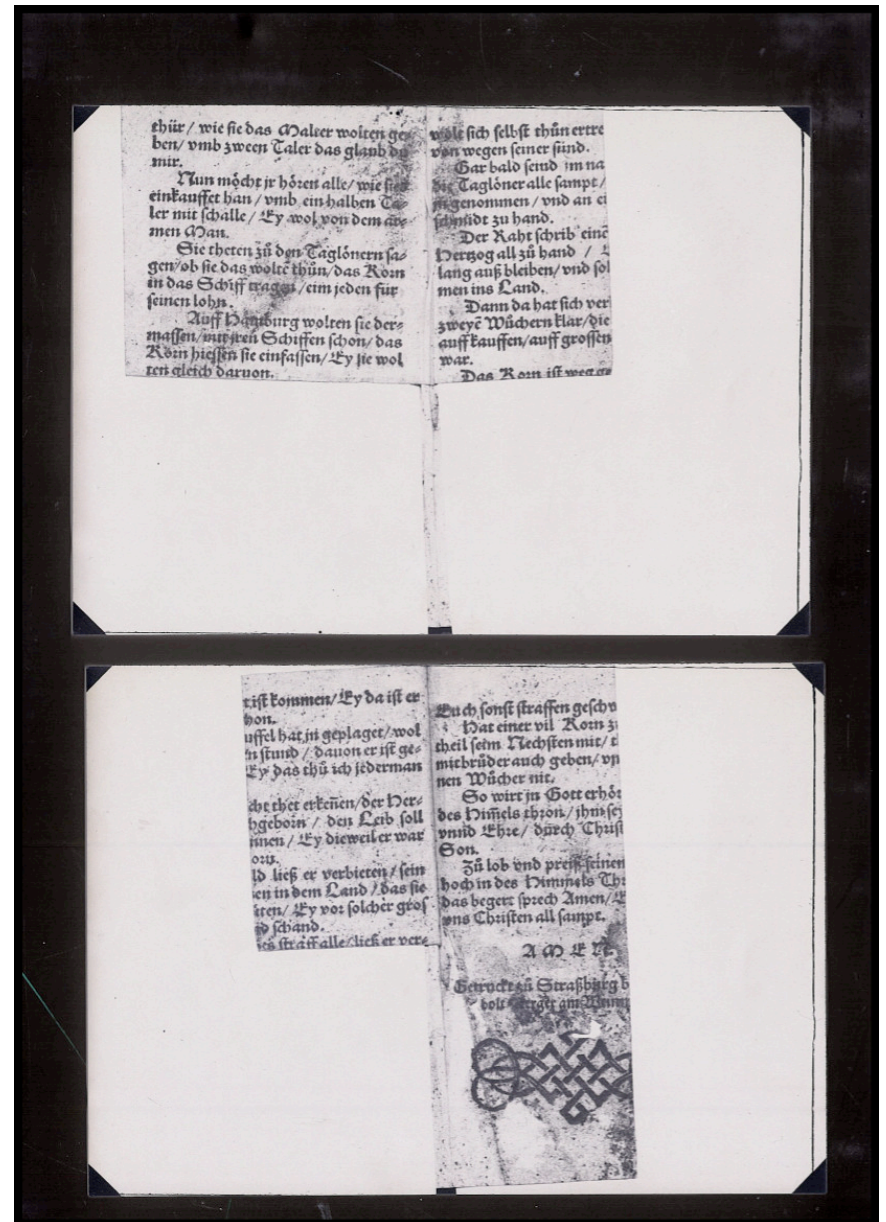 thür / wie sie das Malter wolten ge-
ben / vmb zween Taler das glaub du
mir.
Nun möcht jr hören alle / wie sies
einkauffet han / vmb ein halben Ta-
ler mit schalle / Ey wol von dem ar-
men Man.
Sie theten zů den Taglönern sa-
gen / ob sie das woltē thůn / das Korn
in das Schiff tragen / eim jeden für
seinen lohn.
Auff Hamburg wolten sie der-
massen / mit jren Schiffen schon / das
Korn hiessen sie einfassen / Ey sie wol
ten gleich daruon.
wolt sich selbst thůn ertre
von wegen seiner sünd.
Gar bald seind jm na
die Taglöner alle sampt /
jn genommen / vnd an ei
schmidt zu hand.
Der Raht schrib einē
Hertzog all zů hand /
lang auß bleiben / vnd sol
men ins Land.
Dann da hat sich ver
zweyē Wůchern klar / die
auff kauffen / auff grossen
war.
Das Korn ist weg ge
t ist kommen / Ey da ist er
hon.
uffel hat jn geplaget / wol
n stund / dauon er ist ge-
Ey das thů ich jederman
cht thet erkeñen / der Her-
hgeborn / den Leib soll
innen / Ey dieweil er war
orn.
ld ließ er verbieten / sein
en in dem Land / das sie
iten / Ey vor solcher gros
d schand.
es straff alle / ließ er ver-
Euch sonst straffen geschw
Hat einer vil Korn zu
theil seim Nechsten mit / t
mitbrůder auch geben / vn
nen Wůcher nit.
So wirt jn Gott erhör
des Him̃els thron / jhm sey
vnnd Ehre / durch Christ
Son.
Zů lob vnd preiß seinen
hoch in des Himmels Thr
das begert sprech Amen / E
vns Christen all sampt.
A M E N.
Getruckt zů Straßburg b
bolt Berger am